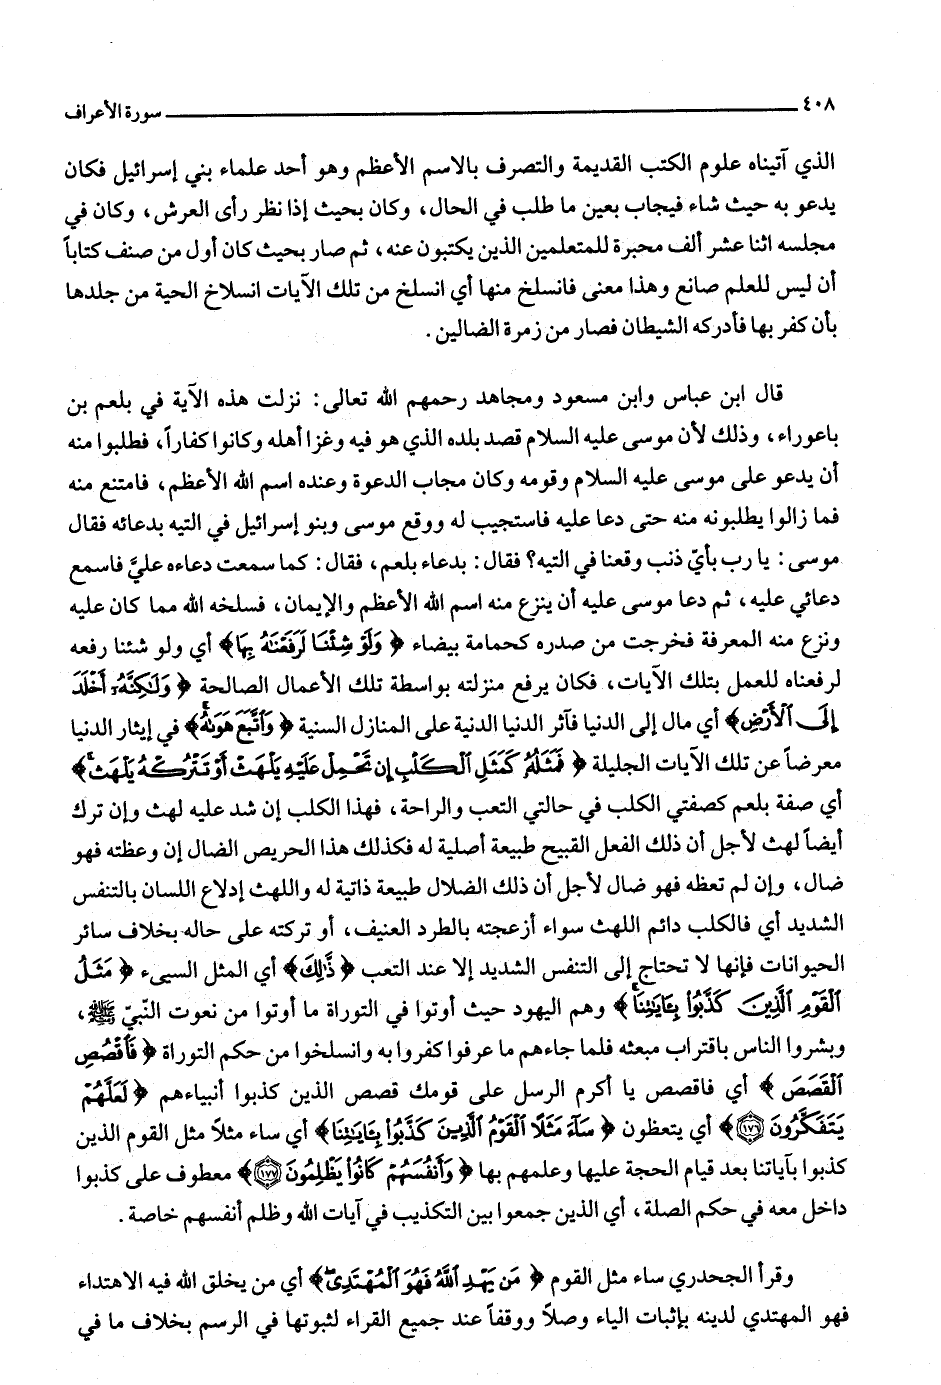 ٤٠٨ سورة الأعراف
الذي آتيناه علوم الكتب القديمة والتصرف بالاسم الأعظم وهو أحد علماء بني إسرائيل فكان
يدعو به حيث شاء فيجاب بعين ما طلب في الحال، وكان بحيث إذا نظر رأى العرش، وكان في
مجلسه اثنا عشر ألف محبرة للمتعلمين الذين يكتبون عنه، ثم صار بحيث كان أول من صنف كتاباً
أن ليس للعلم صانع وهذا معنى فانسلخ منها أي انسلخ من تلك الآيات انسلاخ الحية من جلدها
بأن كفر بها فأدركه الشيطان فصار من زمرة الضالين.
قال ابن عباس وابن مسعود ومجاهد رحمهم الله تعالى: نزلت هذه الآية في بلعم بن
باعوراء، وذلك لأن موسى عليه السلام قصد بلده الذي هو فيه وغزا أهله وكانوا كفاراً، فطلبوا منه
أن يدعو على موسى عليه السلام وقومه وكان مجاب الدعوة وعنده اسم الله الأعظم، فامتنع منه
فما زالوا يطلبونه منه حتى دعا عليه فاستجيب له ووقع موسى وبنو إسرائيل في التيه بدعائه فقال
موسى: يا رب بأيّ ذنب وقعنا في التيه؟ فقال: بدعاء بلعم، فقال: كما سمعت دعاءه عليَّ فاسمع
دعائي عليه، ثم دعا موسى عليه أن ينزع منه اسم الله الأعظم والإيمان، فسلخه الله مما كان عليه
ونزع منه المعرفة فخرجت من صدره كحمامة بيضاء ﴿ وَلَوْ شِئْنَا لَرَفَعْنَٰهُ بِهَا﴾ أي ولو شئنا رفعه
لرفعناه للعمل بتلك الآيات، فكان يرفع منزلته بواسطة تلك الأعمال الصالحة ﴿ وَلَٰكِنَّهُۥٓ أَخْلَدَ
إِلَى ٱلْأَرْضِ﴾ أي مال إلى الدنيا فآثر الدنيا الدنية على المنازل السنية ﴿ وَٱتَّبَعَ هَوَىٰهُ ۚ﴾ في إيثار الدنيا
معرضاً عن تلك الآيات الجليلة ﴿ فَمَثَلُهُۥ كَمَثَلِ ٱلْكَلْبِ إِن تَحْمِلْ عَلَيْهِ يَلْهَثْ أَوْ تَتْرُكْهُ يَلْهَث ۚ﴾
أي صفة بلعم كصفتي الكلب في حالتي التعب والراحة، فهذا الكلب إن شد عليه لهث وإن ترك
أيضاً لهث لأجل أن ذلك الفعل القبيح طبيعة أصلية له فكذلك هذا الحريص الضال إن وعظته فهو
ضال، وإن لم تعظه فهو ضال لأجل أن ذلك الضلال طبيعة ذاتية له واللهث إدلاع اللسان بالتنفس
الشديد أي فالكلب دائم اللهث سواء أزعجته بالطرد العنيف، أو تركته على حاله بخلاف سائر
الحيوانات فإنها لا تحتاج إلى التنفس الشديد إلا عند التعب ﴿ ذَّٰلِكَ﴾ أي المثل السيىء ﴿ مَثَلُ
ٱلْقَوْمِ ٱلَّذِينَ كَذَّبُواْ بِـَٔايَٰتِنَا ۚ﴾ وهم اليهود حيث أوتوا في التوراة ما أوتوا من نعوت النّبيّ ﷺ،
وبشروا الناس باقتراب مبعثه فلما جاءهم ما عرفوا كفروا به وانسلخوا من حكم التوراة ﴿ فَٱقْصُصِ
ٱلْقَصَصَ ﴾ أي فاقصص يا أكرم الرسل على قومك قصص الذين كذبوا أنبياءهم ﴿ لَعَلَّهُمْ
يَتَفَكَّرُونَ ١٧٦﴾ أي يتعظون ﴿ سَآءَ مَثَلًا ٱلْقَوْمُ ٱلَّذِينَ كَذَّبُواْ بِـَٔايَٰتِنَا﴾ أي ساء مثلاً مثل القوم الذين
كذبوا بآياتنا بعد قيام الحجة عليها وعلمهم بها ﴿ وَأَنفُسَهُمْ كَانُواْ يَظْلِمُونَ ١٧٧﴾ معطوف على كذبوا
داخل معه في حكم الصلة، أي الذين جمعوا بين التكذيب في آيات الله وظلم أنفسهم خاصة.
وقرأ الجحدري ساء مثل القوم ﴿ مَن يَهْدِ ٱللَّهُ فَهُوَ ٱلْمُهْتَدِى ۖ﴾ أي من يخلق الله فيه الاهتداء
فهو المهتدي لدينه بإثبات الياء وصلاً ووقفاً عند جميع القراء لثبوتها في الرسم بخلاف ما في